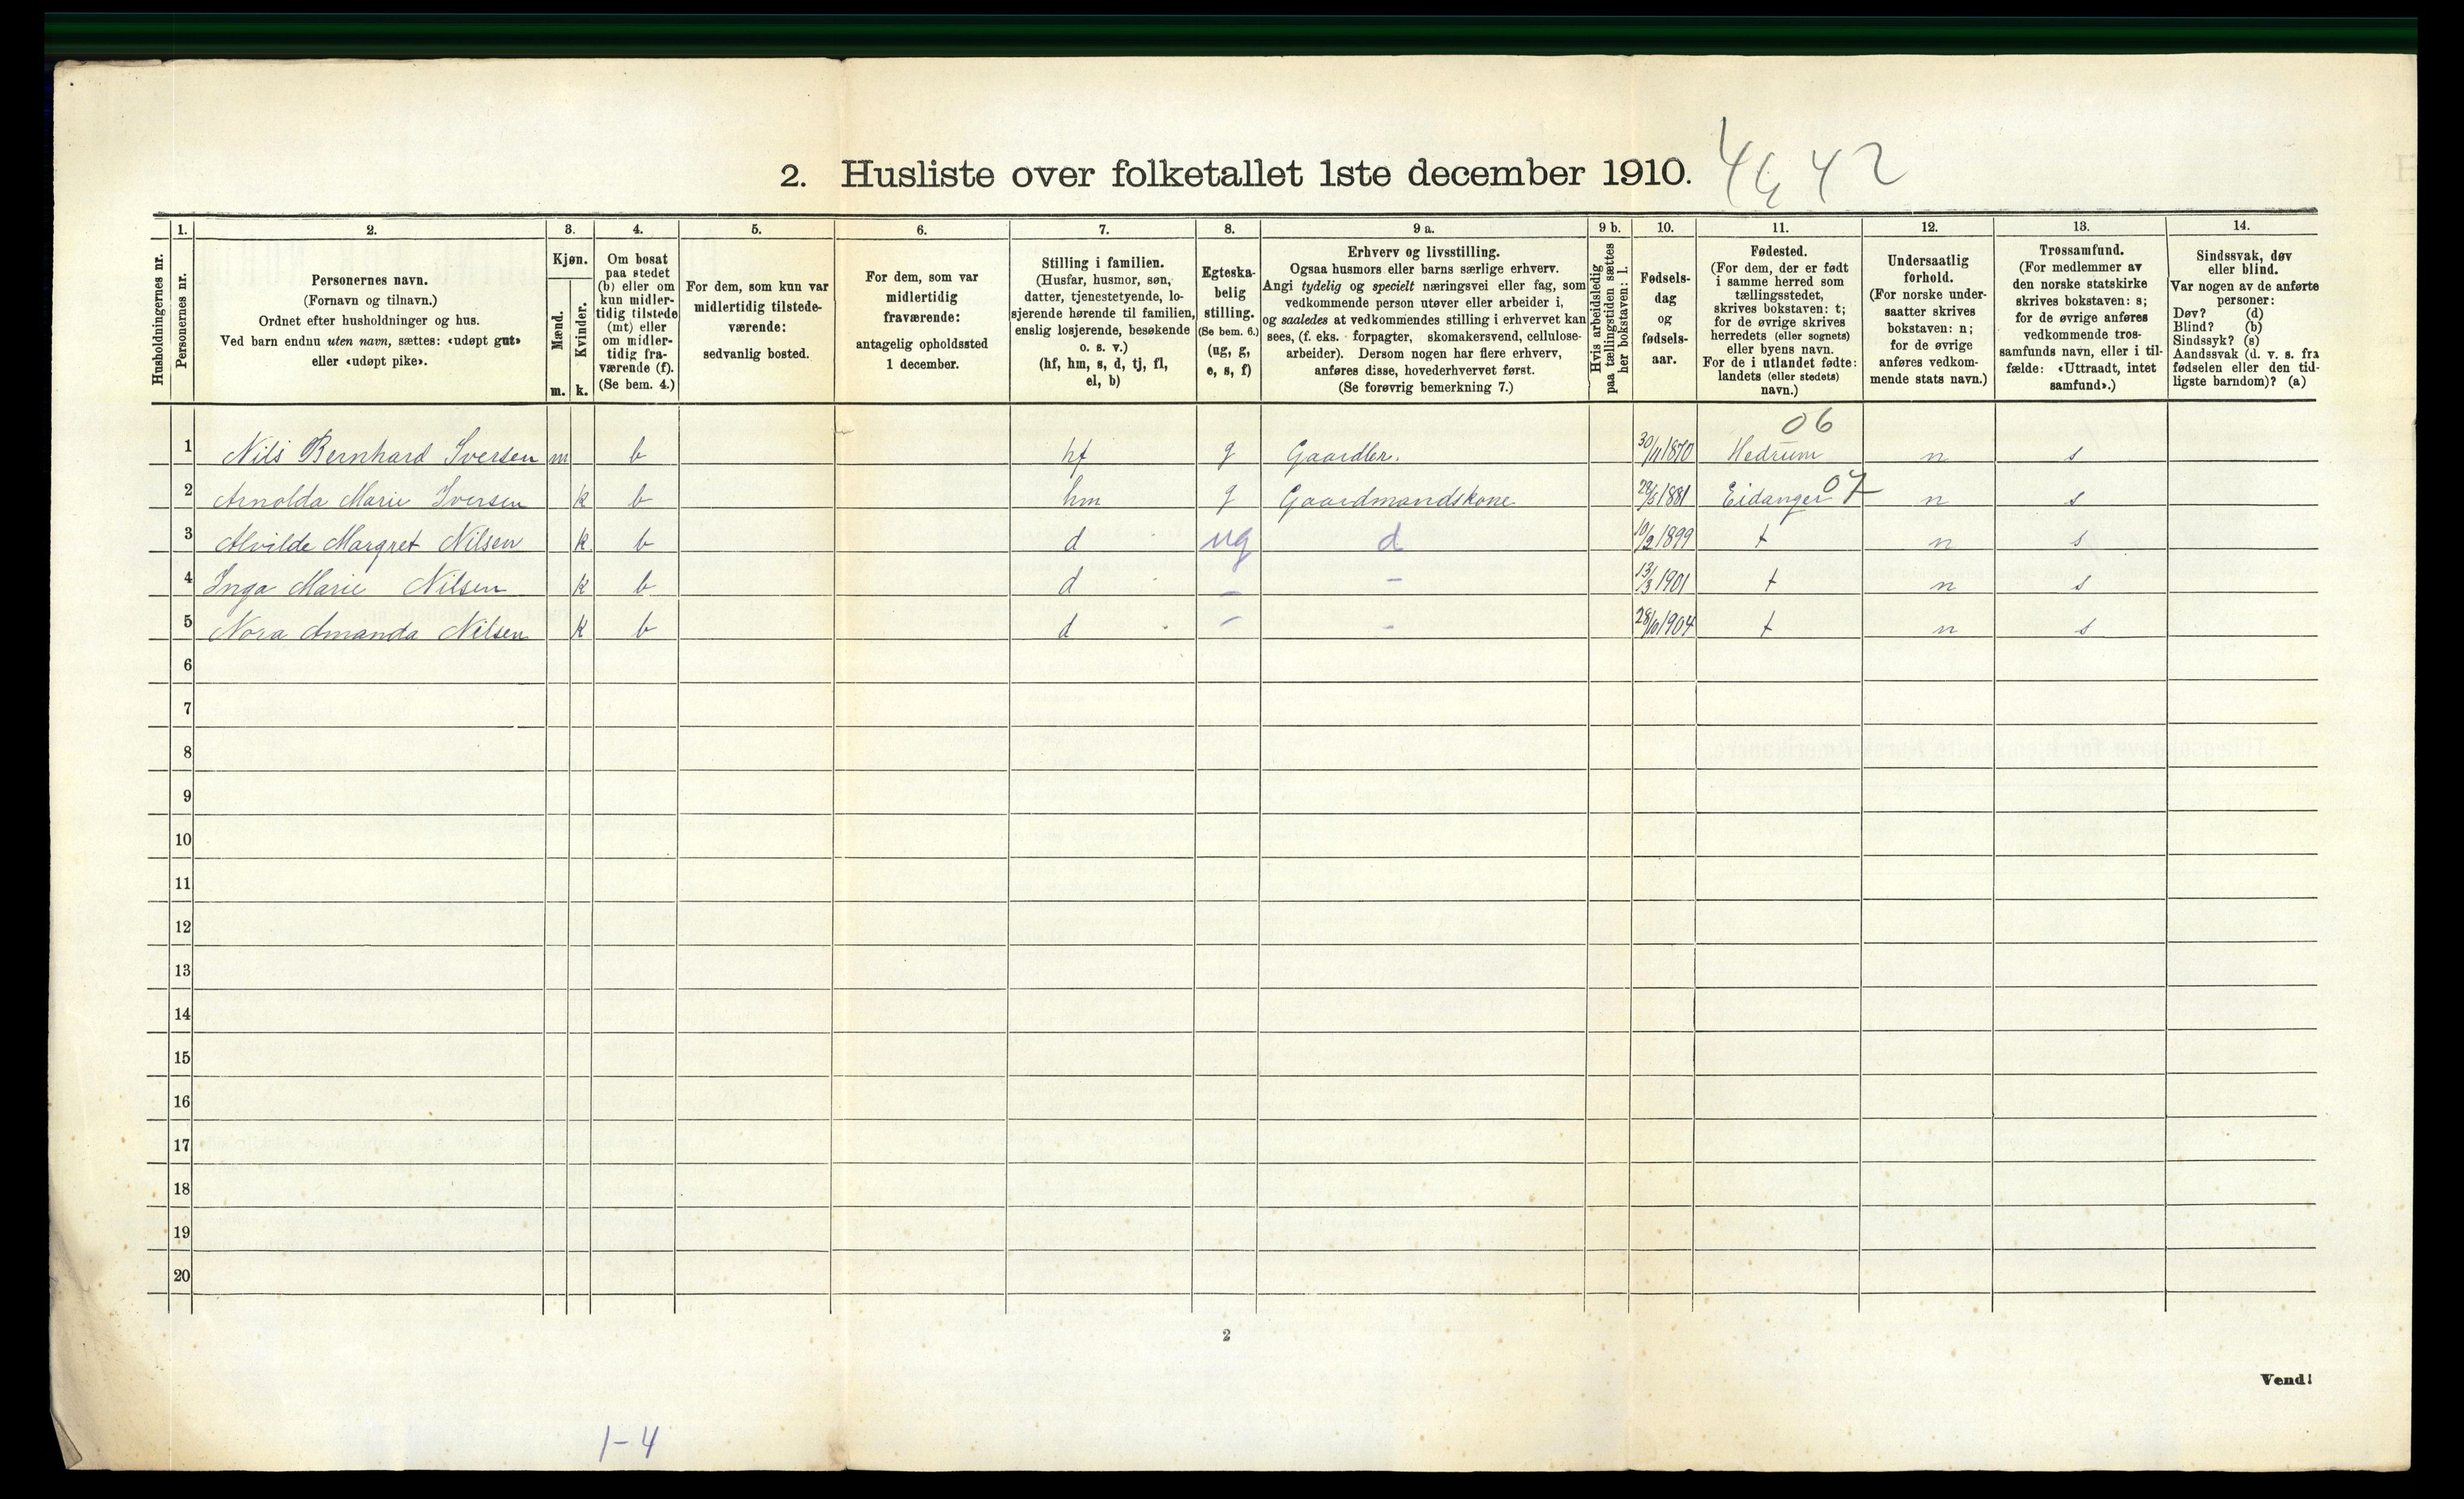 2. Husliste over folketallet 1ste december 1910.
42
Husholdningernes nr.
1.
Personernes nr.
2.
Personernes navn.
(Fornavn og tilnavn.)
Ordnet efter husholdninger og hus.
Ved barn endnu uten navn, sættes: «udøpt gut»
eller «udøpt pike».
3.
Kjøn.
Mænd.
Kvinder.
m. k.
4.
Om bosat
paa stedet
(b) eller om
kun midler-
tidig tilstede
(mt) eller
om midler-
tidig fra-
værende (f).
(Se bem. 4.)
5.
For dem, som kun var
midlertidig tilstede-
værende:
sedvanlig bosted.
6.
For dem, som var
midlertidig
fraværende:
antagelig opholdssted
1 december.
7.
Stilling i familien.
(Husfar, husmor, søn,
datter, tjenestetyende, lo-
sjerende hørende til familien,
enslig losjerende, besøkende
o. s. v.)
(hf, hm, s, d, tj, fl,
el, b)
8.
Egteska-
belig
stilling.
(Se bem. 6.)
(ug, g,
e, s, f)
9 a.
Erhverv og livsstilling.
Ogsaa husmors eller barns særlige erhverv.
Angi tydelig og specielt næringsvei eller fag, som
vedkommende person utøver eller arbeider i,
og saaledes at vedkommendes stilling i erhvervet kan
sees, (f. eks. forpagter, skomakersvend, cellulose-
arbeider). Dersom nogen har flere erhverv,
anføres disse, hovederhvervet først.
(Se forøvrig bemerkning 7.)
9 b.
Hvis arbeidsledig
paa tællingstiden sættes
her bokstaven: l.
10.
Fødsels-
dag
og
fødsels-
aar.
11.
Fødested.
(For dem, der er født
i samme herred som
tællingsstedet,
skrives bokstaven: t;
for de øvrige skrives
herredets (eller sognets)
eller byens navn.
For de i utlandet fødte:
landets (eller stedets)
navn.)
12.
Undersaatlig
forhold.
(For norske under-
saatter skrives
bokstaven: n;
for de øvrige
anføres vedkom-
mende stats navn.)
13.
Trossamfund.
(For medlemmer av
den norske statskirke
skrives bokstaven: s;
for de øvrige anføres
vedkommende tros-
samfunds navn, eller i til-
fælde: «Uttraadt, intet
samfund».)
14.
Sindssvak, døv
eller blind.
Var nogen av de anførte
personer:
Døv? (d)
Blind? (b)
Sindssyk? (s)
Aandssvak (d. v. s. fra
fødselen eller den tid-
ligste barndom)? (a)
06
1 Nils Bernhard Iversen m b hf g Gaardbr. 30/11 1870 Hedrum n s
2 Arnolda Marie Iversen k b hm g Gaardmandskone 28/5 1881 Eidanger 07 n s
3 Alvilde Margret Nilsen k b d ug d 10/2 1899 t n s
4 Inga Marie Nilsen k b d – – 13/3 1901 t n s
5 Nora Amanda Nilsen k b d – – 28/10 1904 t n s
6
7
8
9
10
11
12
13
14
15
16
17
18
19
20
2
Vend!
1-4